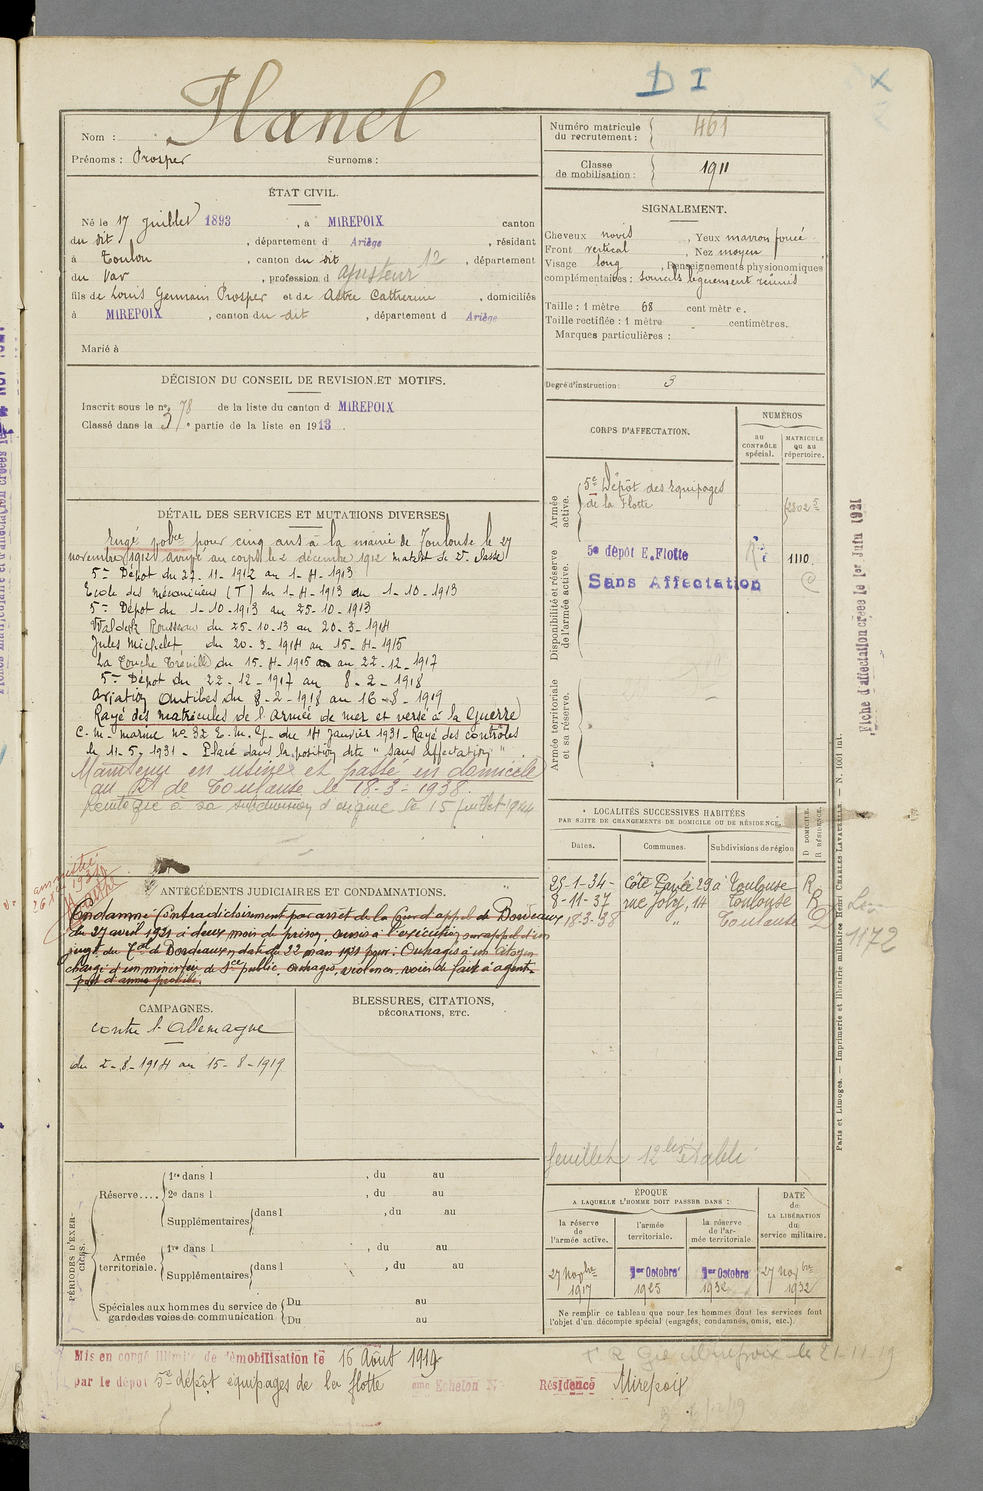 D I
X
Nom : Hanel
Prénoms : Prosper Surnoms :
Numéro matricule du recrutement : 461
Classe de mobilisation : 1911
ÉTAT CIVIL.
Né le 17 Juillet 1893, à MIREPOIX canton
du dit, département d Ariège, résidant
à Toulon, canton du dit, département
du Var, profession d ajusteur 12
fils de Louis Germain Prosper et de Astre Catherine, domiciliés
à MIREPOIX, canton du dit, département d Ariège
Marié à
SIGNALEMENT.
Cheveux noirs, Yeux marron foncé
Front vertical, Nez moyen
Visage long, Renseignements physionomiques
complémentaires : sourcils légèrement réunis
Taille : 1 mètre 68 centimètre.
Taille rectifiée : 1 mètre centimètres.
Marques particulières :
Degré d'instruction : 3
DÉCISION DU CONSEIL DE REVISION ET MOTIFS.
Inscrit sous le n° 78 de la liste du canton d MIREPOIX
Classé dans la 3e partie de la liste en 1913.
DÉTAIL DES SERVICES ET MUTATIONS DIVERSES
Engagé pour cinq ans à la mairie de Toulouse le 27
novembre 1912 arrivé au corps le 2 décembre 1912 matelot de 2e classe
5e Dépôt du 27-11-1912 au 1-4-1913
Ecole des mécaniciens (T) du 1-4-1913 au 1-10-1913
5e Dépôt du 1-10-1913 au 25-10-1913
Waldeck Rousseau du 25-10-13 au 20-3-1914
Jules Michelet, du 20-3-1914 au 15-4-1915
La Touche Tréville du 15-4-1915 au 22-12-1917
5e Dépôt du 22-12-1917 au 8-2-1918
Aviation Antibes du 8-2-1918 au 16-8-1919
Rayé des matricules de l'Armée de mer et versé à la Guerre
C. M. marine n° 32 E. M. G. du 14 janvier 1931 - Rayé des contrôles
le 11-5-1931 - Placé dans la position dite "Sans Affectation"
Maintenu en usine et passé en domicile
au Rt de Toulouse le 18-3-1938.
Réintégré à sa subdivision d'origine le 15 juillet 1944
CORPS D'AFFECTATION.
NUMÉROS
au CONTRÔLE spécial.
MATRICULE ou au répertoire.
Armée active.
5e Dépôt des Equipages
de la Flotte
Disponibilité et réserve de l'armée active.
5e dépôt E. Flotte 1110
Sans Affectation
Armée territoriale et sa réserve.
Fiche d'affectation créée le 1er Juin 1921
LOCALITÉS SUCCESSIVES HABITÉES
PAR SUITE DE CHANGEMENTS DE DOMICILE OU DE RÉSIDENCE.
D. DOMICILE. R. RÉSIDENCE.
Dates. Communes. Subdivisions de région
25-1-34 - Côte Pavée 29 à Toulouse R
8-11-37 rue Joly, 14 Toulouse R
18-3-38 " Toulouse D
1172
ANTÉCÉDENTS JUDICIAIRES ET CONDAMNATIONS.
Condamné contradictoirement par arrêt de la Cour d'appel de Bordeaux
du 27 avril 1921 à deux mois de prison, sursis à l'exécution, sur appel d'un
jugt du Tal de Bordeaux en date du 22 mars 1921 pour : Outrages à un citoyen
chargé d'un ministère de Sce public, outrages, violences, voies de fait à agent,
port d'arme prohibé.
CAMPAGNES.
contre l'Allemagne
du 2-8-1914 au 15-8-1919
BLESSURES, CITATIONS,
DÉCORATIONS, ETC.
feuillet 12 bis établi
PÉRIODES D'EXERCICES.
Réserve.... 1re dans l , du au
2e dans l , du au
Supplémentaires dans l , du au
Armée territoriale. 1re dans l , du au
Supplémentaires dans l , du au
Spéciales aux hommes du service de garde des voies de communication Du au
Du au
ÉPOQUE
A LAQUELLE L'HOMME DOIT PASSER DANS :
la réserve de l'armée active.
l'armée territoriale.
la réserve de l'armée territoriale.
DATE de LA LIBÉRATION du service militaire.
27 Novbre 1917
1er Octobre 1925
1er Octobre 1932
27 Novbre 1932
Ne remplir ce tableau que pour les hommes dont les services font
l'objet d'un décompte spécial (engagés, condamnés, omis, etc.).
Paris et Limoges. — Imprimerie et librairie militaires Henri CHARLES-LAVAUZELLE — N. 1001 int.
Mis en congé illimité de démobilisation le 16 Août 1919
par le dépôt 5e dépôt équipages de la flotte Echelon N° Résidence Mirepoix